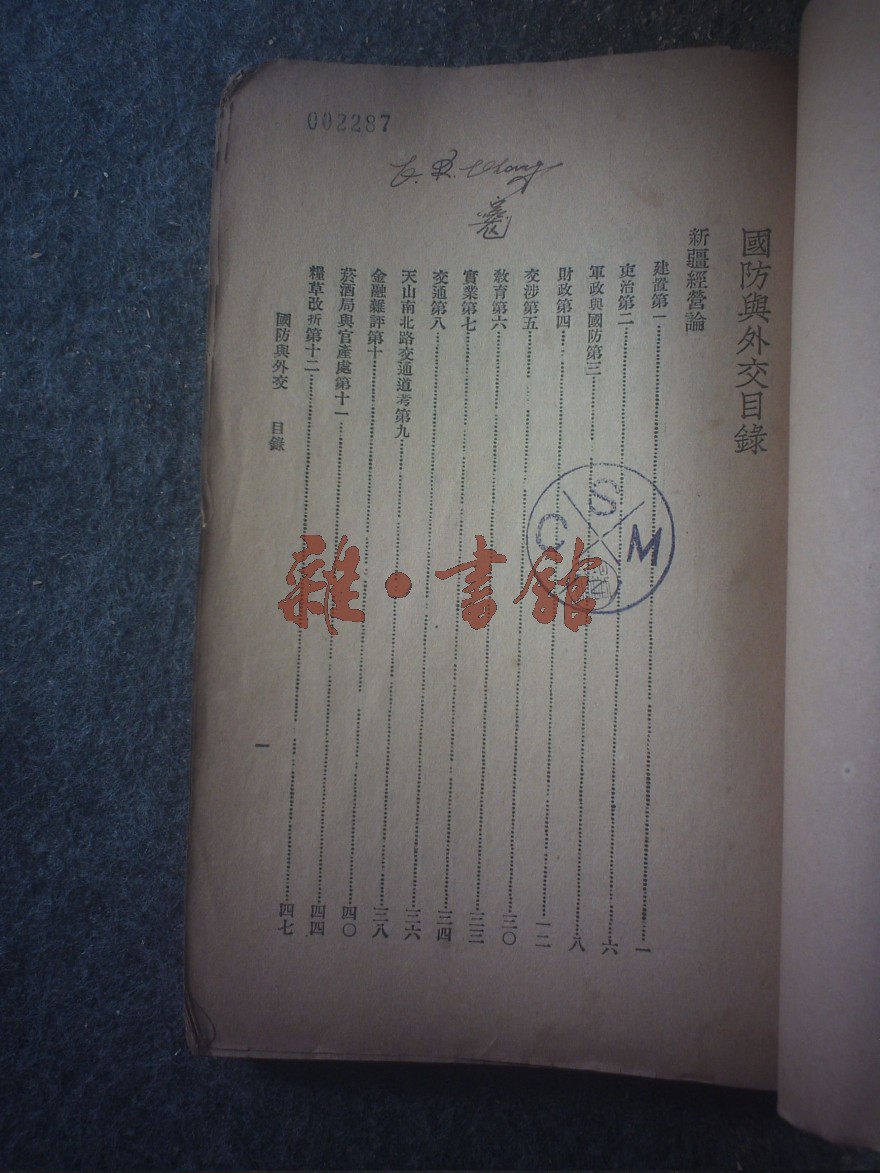 國防與外交目錄
新疆經營論
建置第一……一
吏治第二……六
軍政與國防第三……八
財政第四……一二
交涉第五……三〇
教育第六……三三
實業第七……三四
交通第八……三六
天山南北路交通道考第九……三八
金融雜評第十……四〇
菸酒局與官產處第十一……四四
糧草改折第十二……四七
國防與外交 目錄
一
002287
C S M
雜·書館